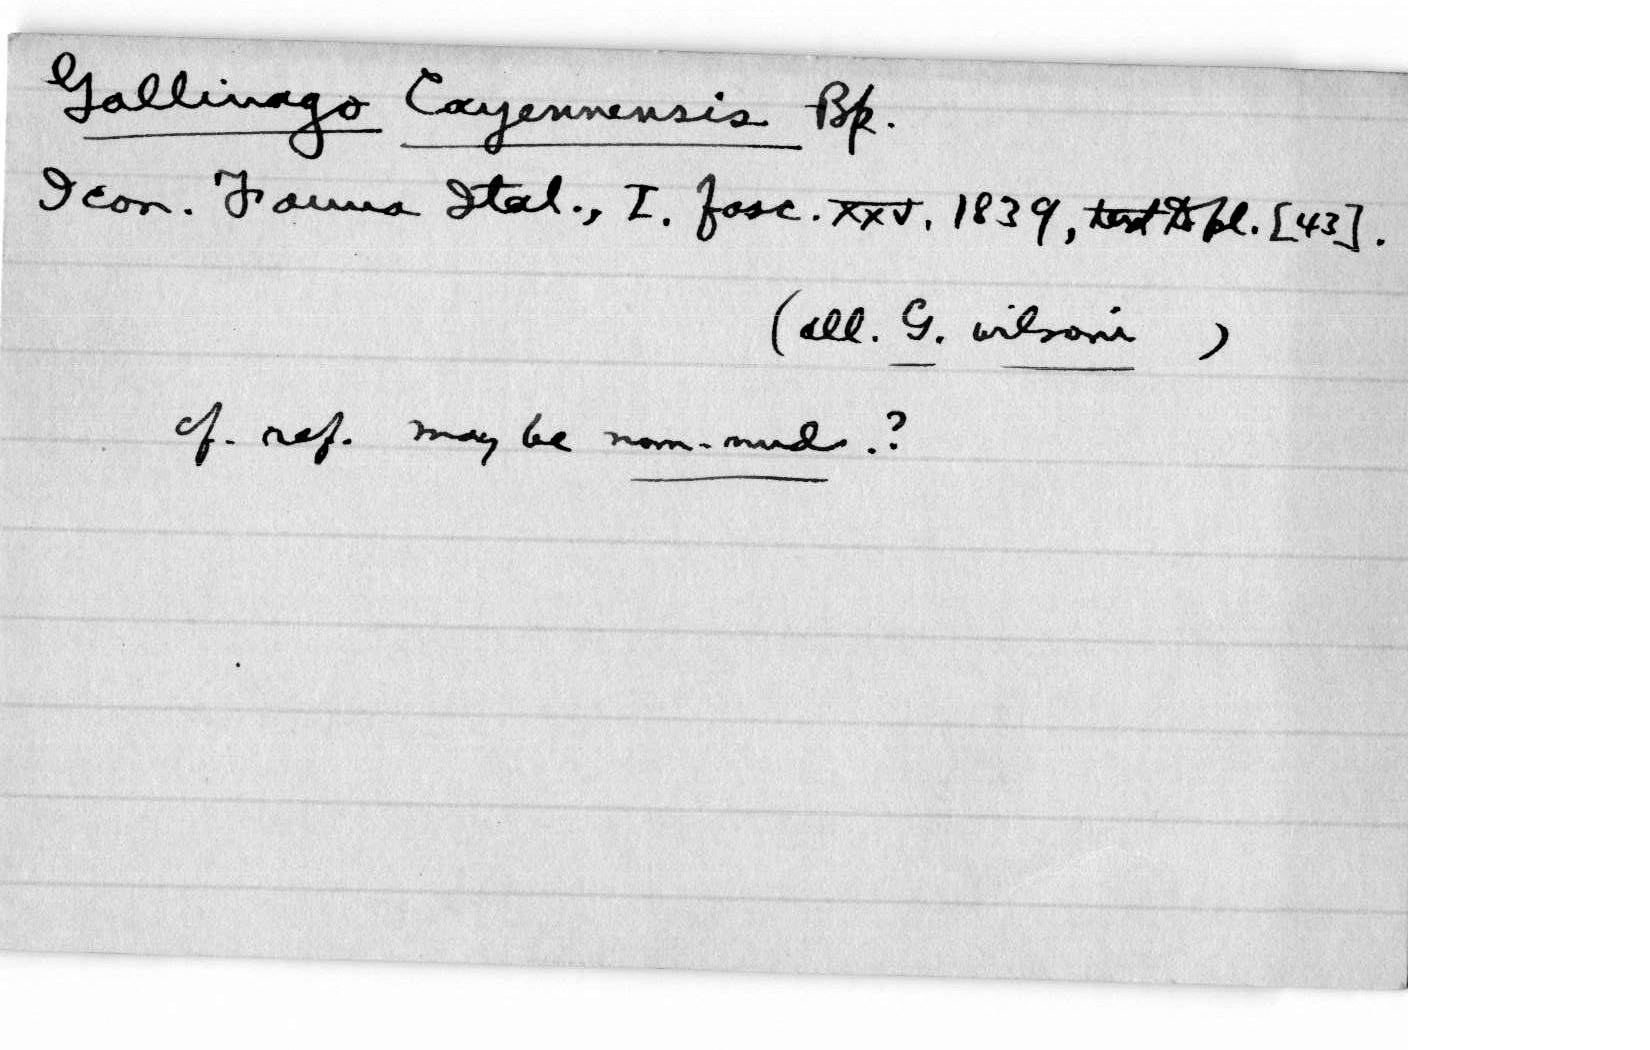 Gallinago Cayennensis Bp.
Icon. Fauna Ital., I. fasc. XXV. 1839, text to pl. [43].
(all. G. wilsoni )
cf. ref. may be nom. nud.?